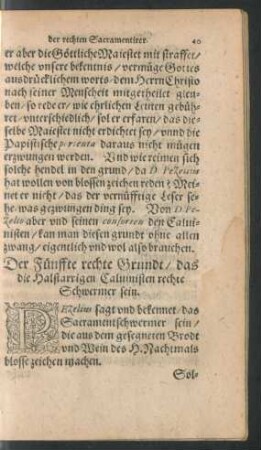 der rechten Sacramentirer. 40
er aber die Göttliche Maiestet mit straffet /
welche vnsere bekentnis / vermüge Gottes
ausdrücklichem worts / dem Herrn Christo
nach seiner Menscheit mitgetheilet glau-
ben / so rede er / wie ehrlichen Leuten gebüh-
ret / vnterschiedlich / sol er erfaren / das die-
selbe Maiestet nicht erdichtet sey / vnnd die
Papistische daraus nicht mügen
erzwungen werden. Vnd wie reimen sich
solche hendel in den grund / da D. Pezelius
hat wollen von blossen zeichen reden? Mei-
net er nicht / das der vernüfftige Leser se-
he / was gezwungen ding sey. Von D. Pe-
zelio aber vnd seinen consorten den Calui-
nisten / kan man diesen grund ohne allen
zwang / eigentlich vnd wol also brauchen.
Der Fünffte rechte Grundt / das
die Halstarrigen Caluinisten rechte
Schwermer sein.
PEzelius sagt vnd bekennet / das
Sacramentschwermer sein /
die aus dem gesegneten Brodt
vnd Wein des H. Nachtmals
blosse zeichen machen.
Sol-